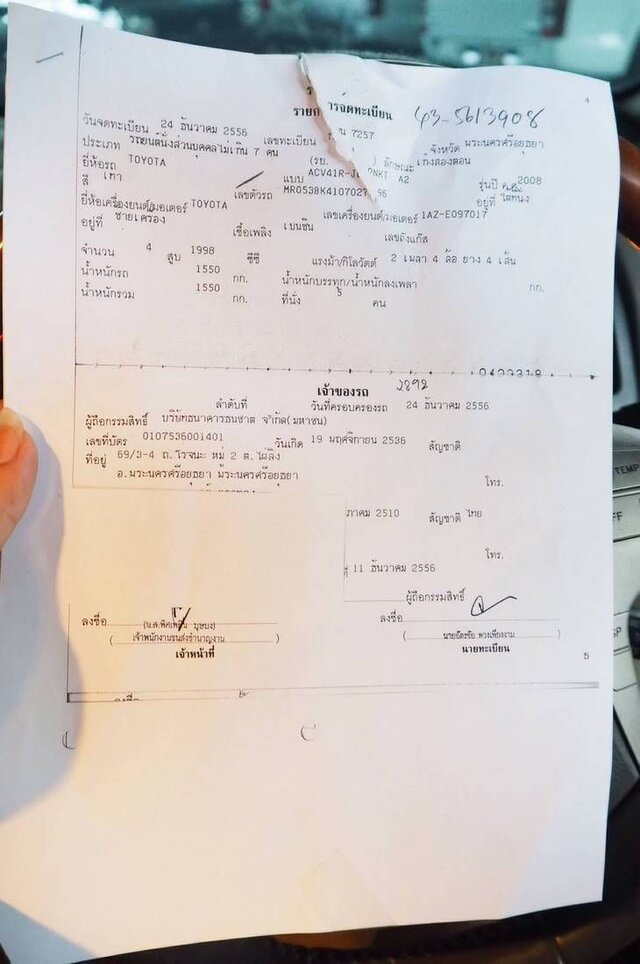 รายก ารจดทะเบียน 43-5613908
4
วันจดทะเบียน 24 ธันวาคม 2556 เลขทะเบียน 7257 จังหวัด พระนครศรีอยุธยา
ประเภท รถยนต์นั่งส่วนบุคคลไม่เกิน 7 คน (รย. 1 ) ลักษณะ เก๋งสองตอน
ยี่ห้อรถ TOYOTA แบบ ACV41R- A2 รุ่นปี ค.ศ. 2008
สี เทา เลขตัวรถ MR053BK4107027 96 อยู่ที่
ยี่ห้อเครื่องยนต์/มอเตอร์ TOYOTA เลขเครื่องยนต์/มอเตอร์ 1AZ-E097017
อยู่ที่ ซ้ายเครื่อง เชื้อเพลิง เบนซิน เลขถังแก๊ส
จำนวน 4 สูบ 1998 ซีซี แรงม้า/กิโลวัตต์ 2 เพลา 4 ล้อ ยาง 4 เส้น
น้ำหนักรถ 1550 กก. น้ำหนักบรรทุก/น้ำหนักลงเพลา กก.
น้ำหนักรวม 1550 กก. ที่นั่ง 5 คน
เจ้าของรถ 2892
ลำดับที่ วันที่ครอบครองรถ 24 ธันวาคม 2556
ผู้ถือกรรมสิทธิ์ บริษัทธนาคารธนชาต จำกัด(มหาชน)
เลขที่บัตร 0107536001401 วันเกิด 19 พฤศจิกายน 2536 สัญชาติ
ที่อยู่ 69/3-4 ถ.โรจนะ หมู่ 2 ต.ไผ่ลิง
อ.พระนครศรีอยุธยา พระนครศรีอยุธยา โทร.
ภาคม 2510 สัญชาติ ไทย
โทร.
ที่ 11 ธันวาคม 2556
ผู้ถือกรรมสิทธิ์
ลงชื่อ ลงชื่อ
(เจ้าพนักงานขนส่งชำนาญงาน)
เจ้าหน้าที่ นายทะเบียน
5